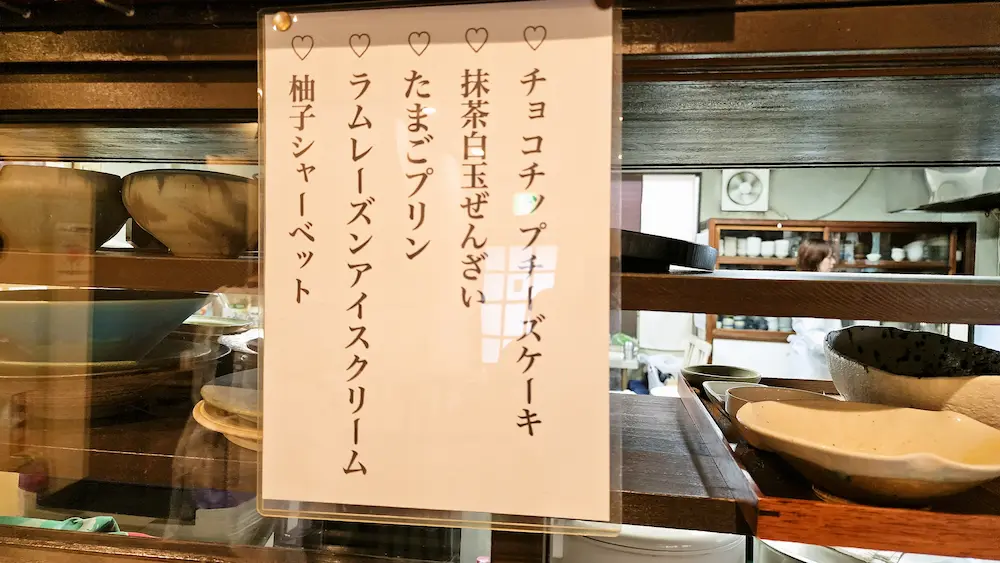 ♡チョコチップチーズケーキ
♡抹茶白玉ぜんざい
♡たまごプリン
♡ラムレーズンアイスクリーム
♡柚子シャーベット